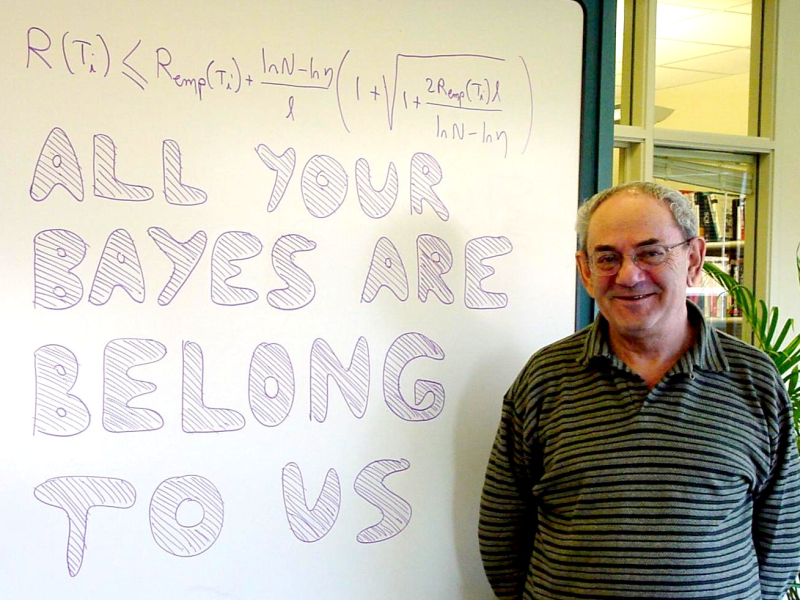 R(Ti) ≤ Remp(Ti) + (lnN-lnη)/l (1 + √(1 + 2Remp(Ti)l/(lnN-lnη)))
ALL YOUR
BAYES ARE
BELONG
TO US